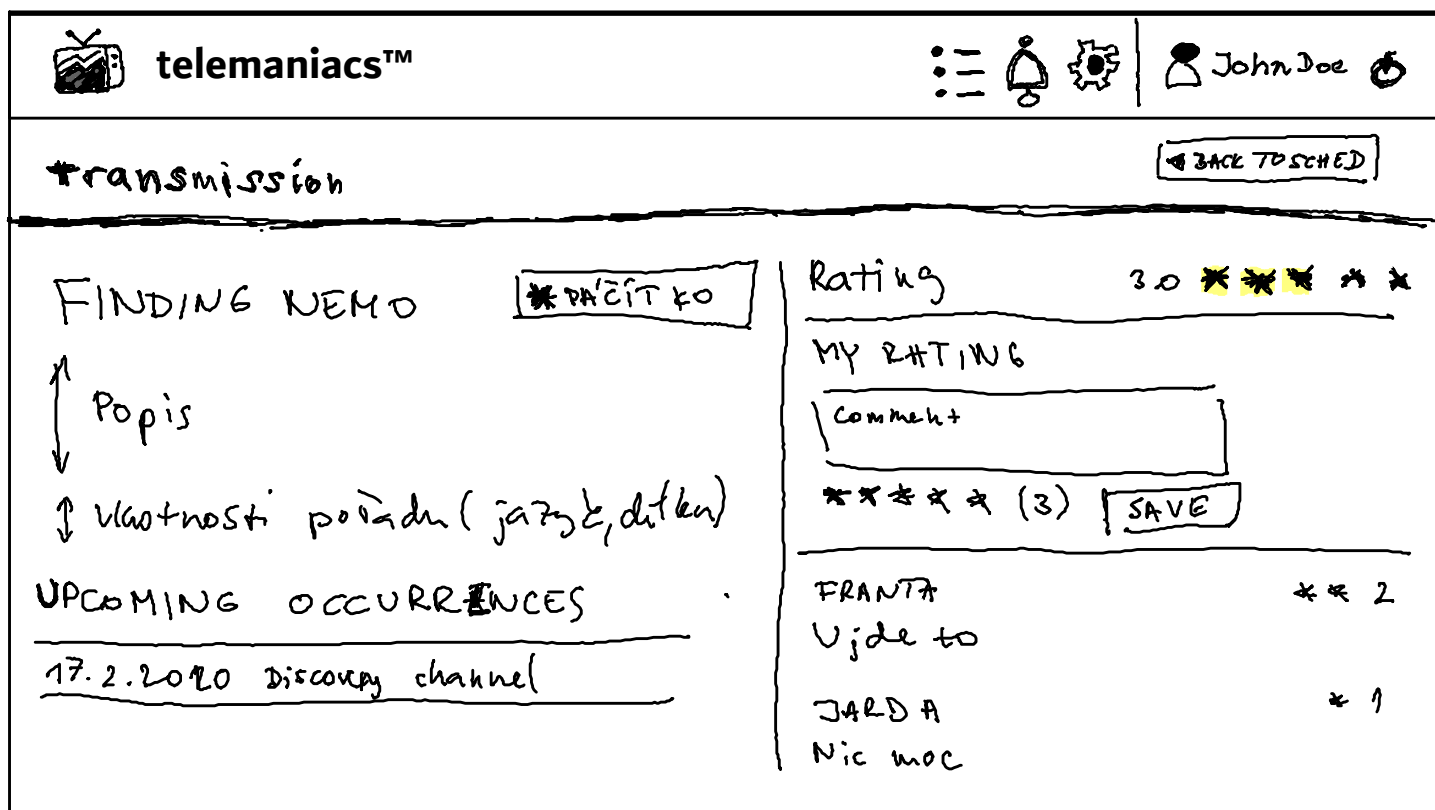 telemaniacs™
John Doe
transmission
BACK TO SCHED
FINDING NEMO
PÁČÍTKO
Popis
vlastnosti pořadu (jazyk, délka)
UPCOMING OCCURRENCES
17.2.2020 Discovery channel
Rating 3.0
MY RATING
Comment
(3) SAVE
FRANTA 2
Ujde to
JARDA 1
Nic moc